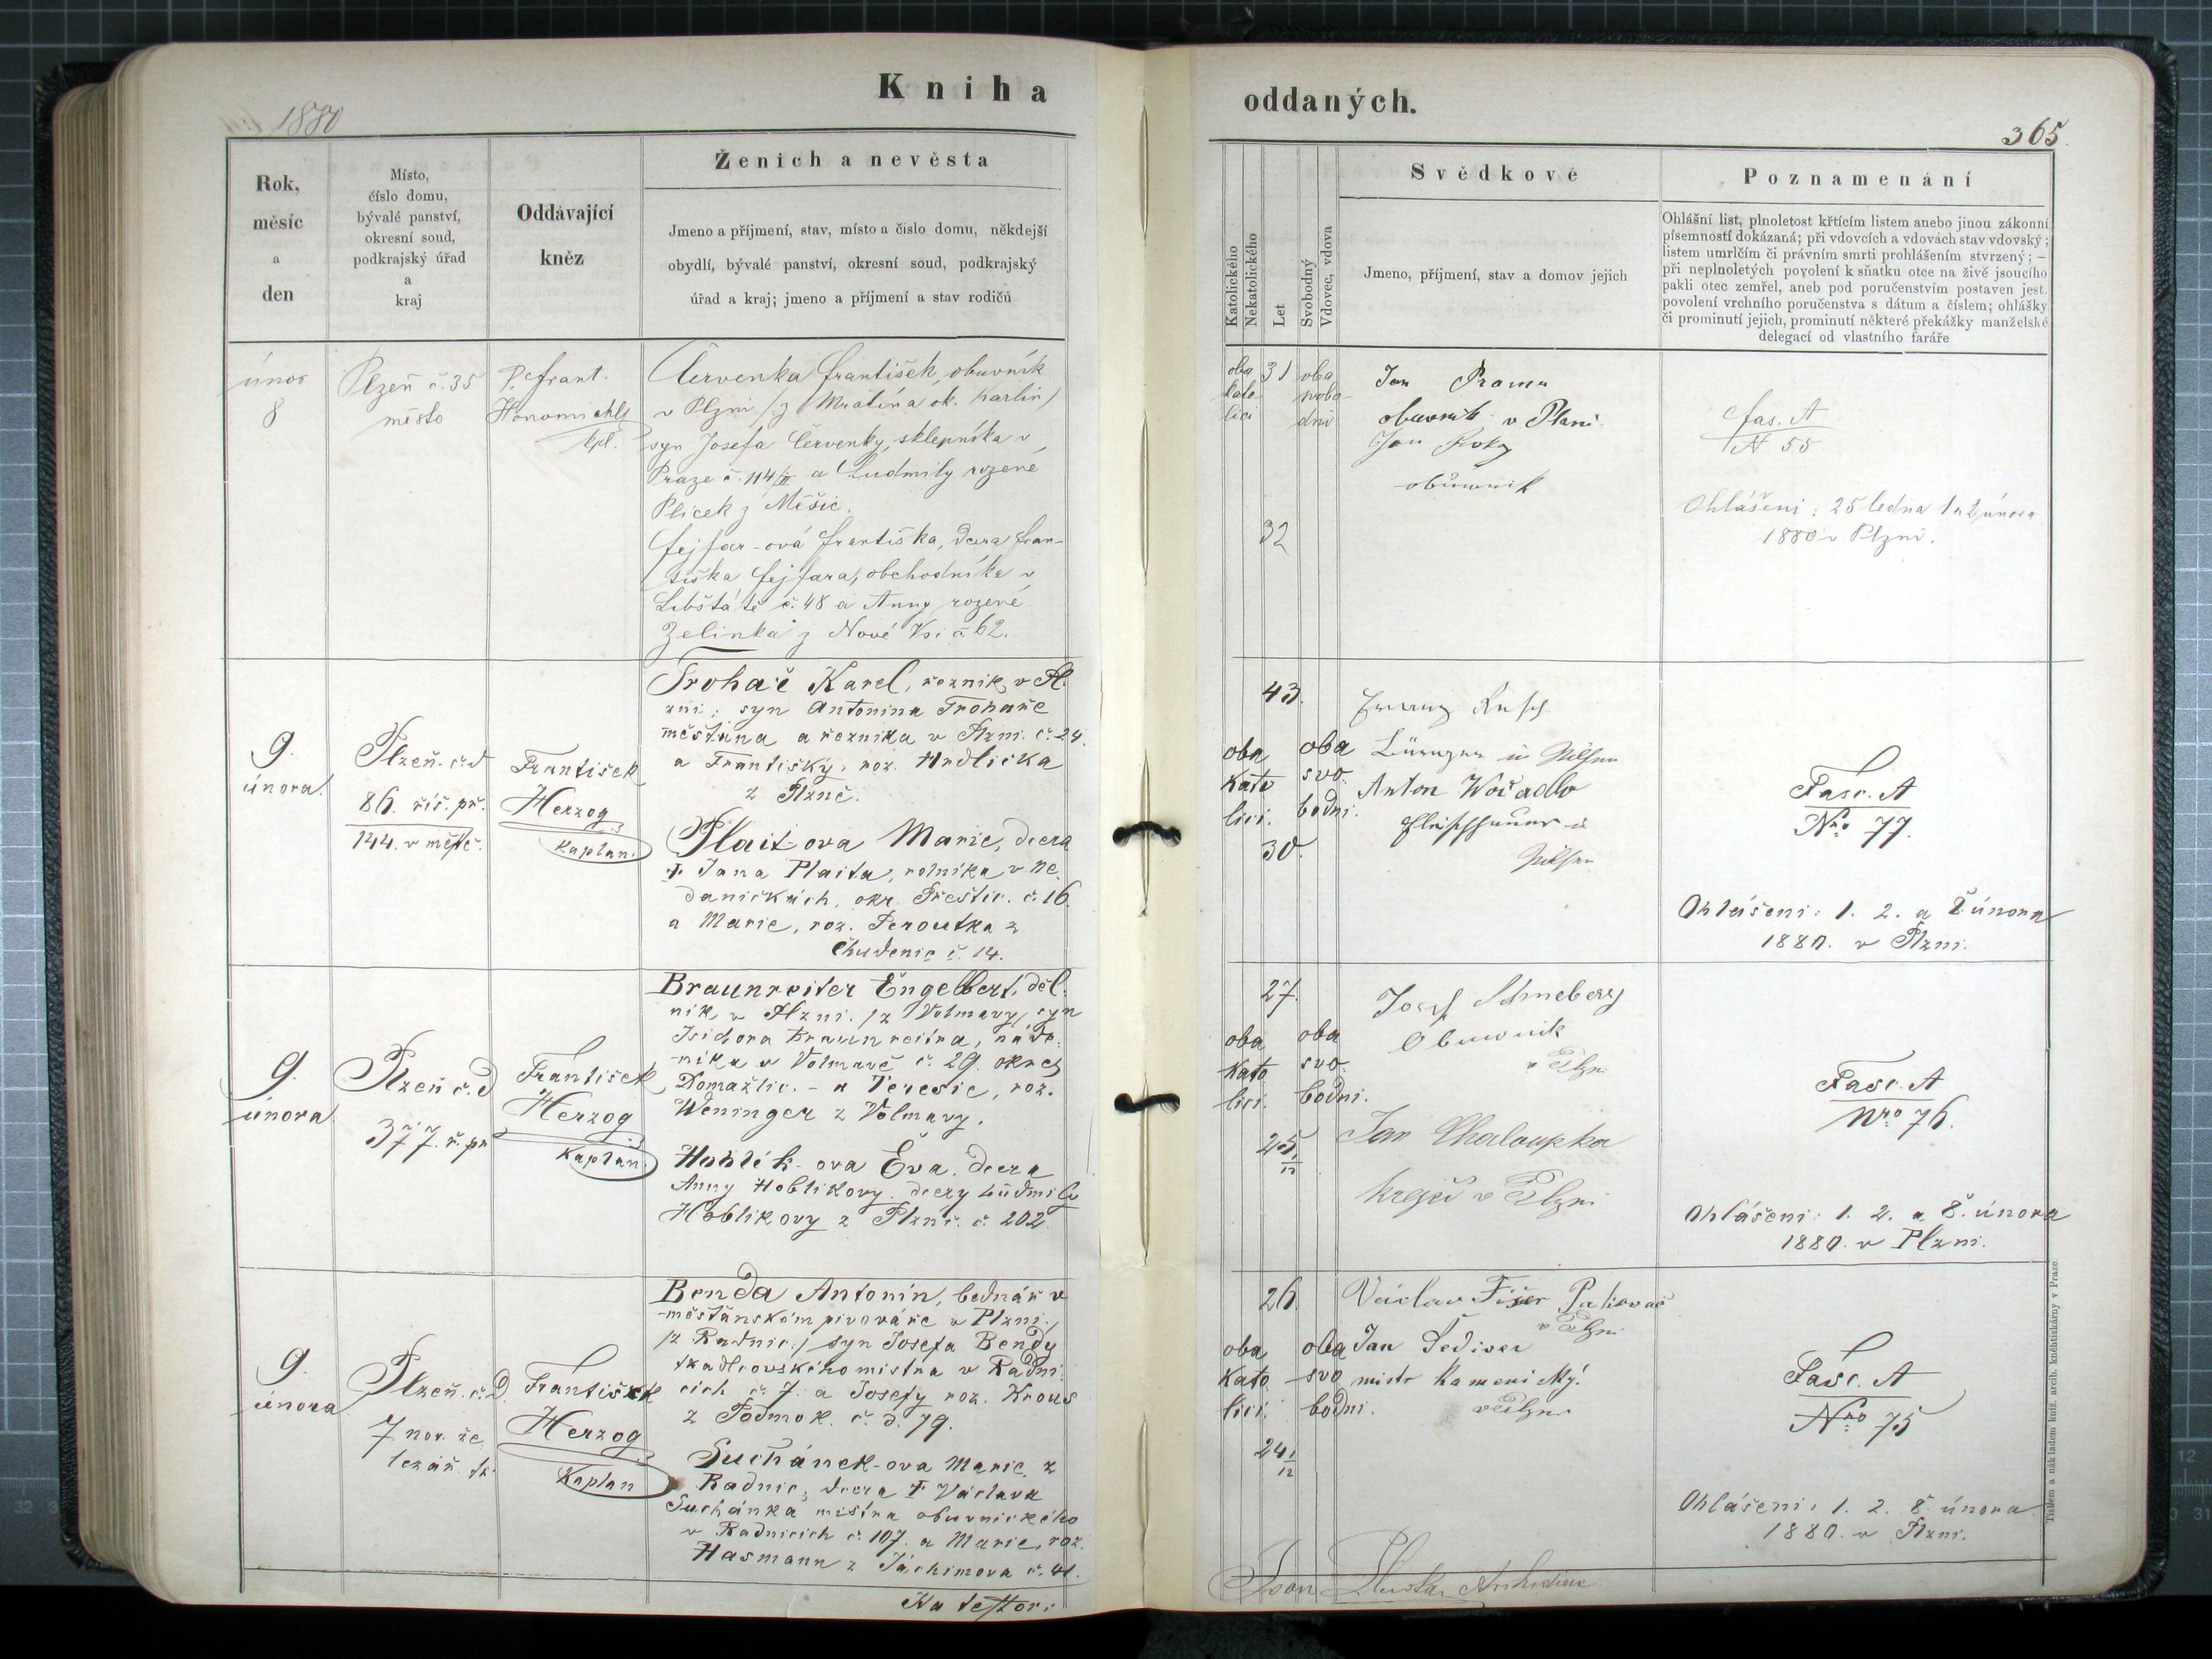 Kniha
1880
Rok,
měsíc
a
den
Místo,
číslo domu,
bývalé panství,
okresní soud,
podkrajský úřad
a
kraj
Oddávající
kněz
Ženich a nevěsta
Jmeno a příjmení, stav, místo a číslo domu, někdejší
obydlí, bývalé panství, okresní soud, podkrajský
úřad a kraj; jmeno a příjmení a stav rodičů
únor
8
Plzeň č. 35
město
P. Frant.
kpl.
Červenka František, obuvník
v Plzni /z Mratína ok. Karlín/
syn Josefa Červenky, sklepníka v
Praze č. 114/II a Ludmily rozené
Plicek z Měšic.
Fejfar-ová Františka, dcera Fran-
tiška Fejfara, obchodníka v
Libštátě č. 48 a Anny rozené
Zelinka z Nové Vsi č 62.
9.
února.
Plzeň. č. d
86. říš. př.
144. v městě.
František
Herzog
Kaplan.
Trohař Karel, řezník v Pl-
zni; syn Antonína Trohaře
měštana a řezníka v Plzni. č. 24.
a Františky, roz. Hrdlička
z Plzně.
Plait-ova Marie, dcera
† Jana Plaita, rolníka v Ne-
daničkách, okr. Přeštic. č. 16.
a Marie, roz. Peroutka z
Chudenic č. 14.
9.
února
Plzeň č. d
377. ř. př
František
Herzog
Kaplan.
Braunreiter Engelbert, děl-
ník v Plzni. /z Volmavy/ syn
Isidora Braunreitra, nádе-
níka v Volmavě č. 29. okres
Domažlic. - a Teresie, roz.
Weninger z Volmavy.
Hoblík-ova Eva. dcera
Anny Hoblikovy. dcery Ludmily
Hoblikovy z Plzně. č. 202.
9.
února
Plzeň. č. d.
František
Herzog
Kaplan
Benda Antonín, bednář v
měštanském pivováře v Plzni.
/z Radnic./ syn Josefa Bendy
tkadlcovského mistra v Radni-
cích č. 7. a Josefy roz. Krous
z Podmok. č. d. 79.
Suchánek-ova Marie. z
Radnic, dcera † Václava
Suchánka mistra obuvnického
v Radnicích č. 107. a Marie, roz.
Hasmann z Jáchimova č. 41.
oddaných.
365
Katolického
Nekatolického
Let
Svobodný
Vdovec, vdova
Svědkové
Jmeno, příjmení, stav a domov jejich
Poznamenání
Ohlášní list, plnoletost křtícím listem anebo jinou zákonní
písemností dokázaná; při vdovcích a vdovách stav vdovský;
listem umrlčím či právním smrti prohlášením stvrzený; —
při neplnoletých povolení k sňatku otce na živě jsoucího
pakli otec zemřel, aneb pod poručenstvím postaven jest.
povolení vrchního poručenstva s dátum a číslem; ohlášky
či prominutí jejich, prominutí některé překážky manželské
delegací od vlastního faráře
oba
kato
lici
31
oba
svobo-
dní
32
Jan
obuvník v Plzni
Jan
obuvník
fas. A
N 55
Ohlášeni: 25 ledna 1 a 2 února
1880 v Plzni.
43.
oba
kato
lici.
30.
oba
svo-
bodni.
Anton
Fasc. A
Nro 77.
Ohlášeni: 1. 2. a 8. února
1880. v Plzni.
27.
oba
kato
lici.
25.
oba
svo-
bodni.
Josef Schneberg
Obuwnik
v Plzni
Jan Chaloupka
krejčí v Plzni
Fasc. A
Nro 76.
Ohlášeni: 1. 2. a 8. února
1880. v Plzni.
26.
oba
kato
lici.
24
oba
svo
bodni.
Václav Fišer
v Plzni
Jan Šediver
mistr kamenický
v Plzni
Fasc. A
Nro 75
Ohlášeni: 1. 2. 8. února
1880. v Plzni.
Tiskem a nákladem kníž. arcib. knihtiskárny v Praze